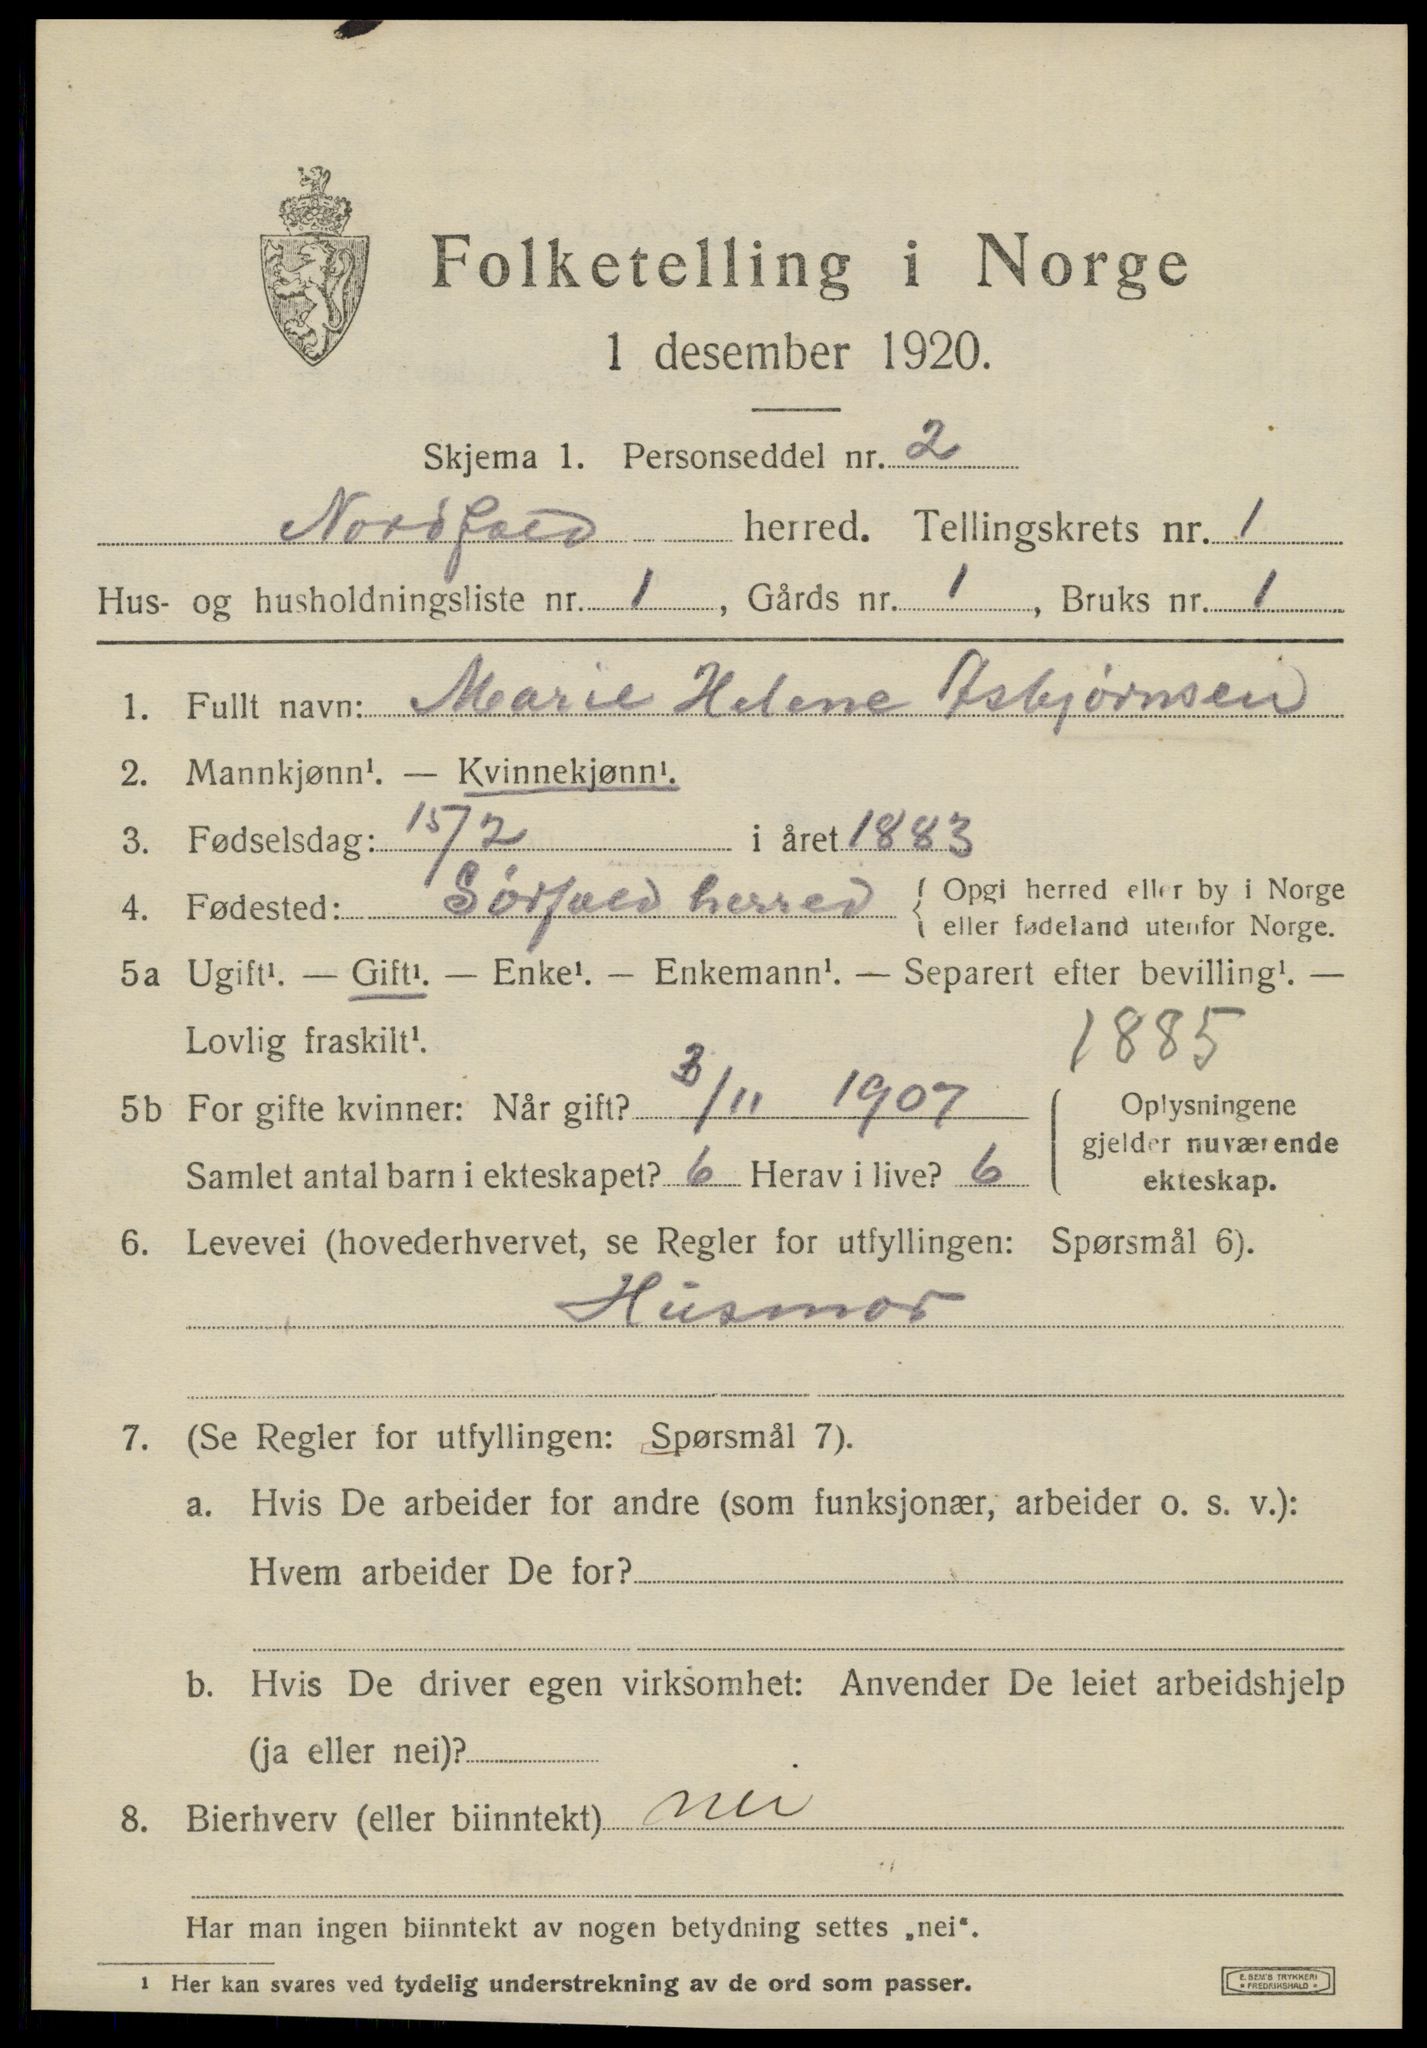 Folketelling i Norge
1 desember 1920.
Skjema 1. Personseddel nr. 2
Nordfold herred. Tellingskrets nr. 1
Hus- og husholdningsliste nr. 1, Gårds nr. 1, Bruks nr. 1
1. Fullt navn: Marie Helene Asbjørnsen
2. Mannkjønn¹. — Kvinnekjønn¹.
3. Fødselsdag: 15/2 i året 1883
4. Fødested: Sørfold herred { Opgi herred eller by i Norge
eller fødeland utenfor Norge.
5a Ugift¹. — Gift¹. — Enke¹. — Enkemann¹. — Separert efter bevilling¹. —
Lovlig fraskilt¹. 1885
5b For gifte kvinner: Når gift? 3/11 1907
Samlet antal barn i ekteskapet? 6 Herav i live? 6
Oplysningene
gjelder nuværende
ekteskap.
6. Levevei (hovederhvervet, se Regler for utfyllingen: Spørsmål 6).
Husmor
7. (Se Regler for utfyllingen: Spørsmål 7).
a. Hvis De arbeider for andre (som funksjonær, arbeider o. s. v.):
Hvem arbeider De for?
b. Hvis De driver egen virksomhet: Anvender De leiet arbeidshjelp
(ja eller nei)?
8. Bierhverv (eller biinntekt) nei
Har man ingen biinntekt av nogen betydning settes „nei“.
¹ Her kan svares ved tydelig understrekning av de ord som passer.
E. SEM'S TRYKKERI
• FREDRIKSHALD •